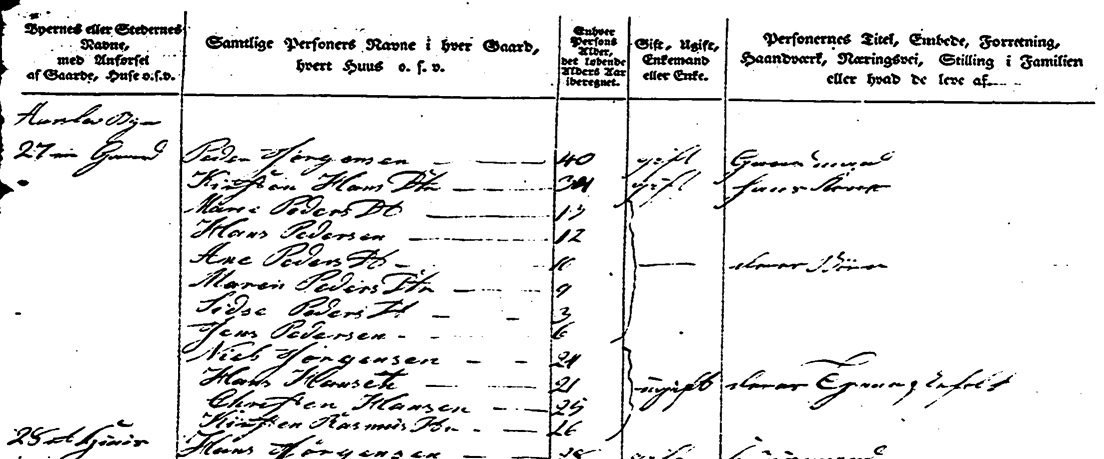 Byernes eller Stedernes
Navne,
med Anførsel
af Gaarde, Huse o.s.v.
Samtlige Personers Navne i hver Gaard,
hvert Huus o. s. v.
Enhver
Persons
Alder,
det løbende
Alders Aar
iberegnet.
Gift, Ugift,
Enkemand
eller Enke.
Personernes Titel, Embede, Forretning,
Haandværk, Næringsvei, Stilling i Familien
eller hvad de leve af.
Bye
27 Gaard Peder Jørgensen 40 gift Gaardmand
Kirsten Hans Dtr 39 gift hans Kone
Marie Peders Dt 13
Hans Pedersen 12
Ane Peders Dt deres Börn
Maren Peders Dtr 9
Sidse Peders Dt 3
Jens Pedersen 6
Niels Jørgensen 24
Hans Hansen 21 ugift deres
Christen Hansen 25
Kirsten Rasmus Dtr 26
28 Huus Hans Jørgensen